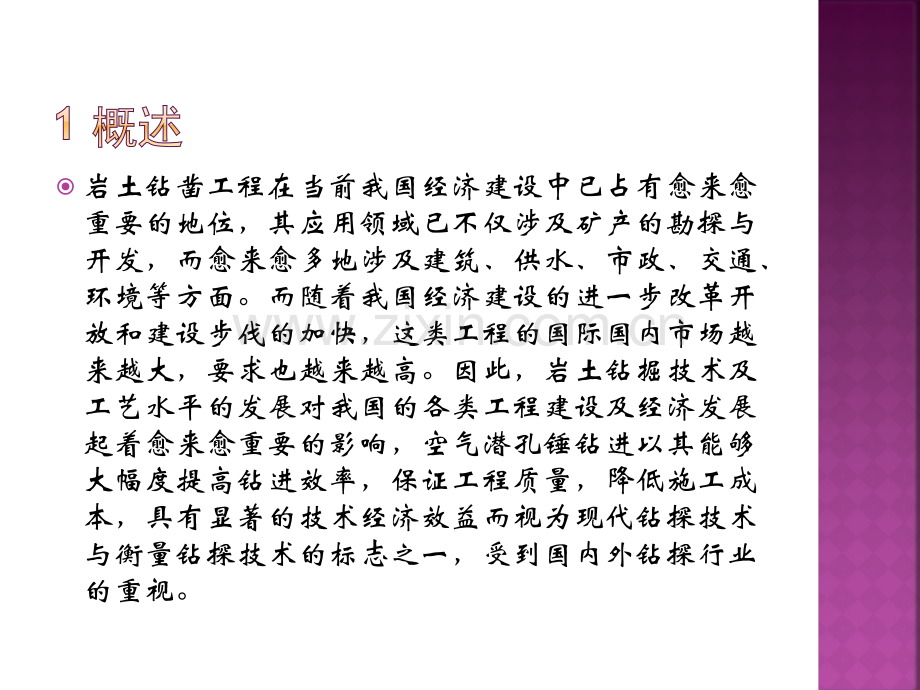 1 概述
岩土钻凿工程在当前我国经济建设中已占有愈来愈
重要的地位，其应用领域已不仅涉及矿产的勘探与
开发，而愈来愈多地涉及建筑、供水、市政、交通、
环境等方面。而随着我国经济建设的进一步改革开
放和建设步伐的加快，这类工程的国际国内市场越
来越大，要求也越来越高。因此，岩土钻掘技术及
工艺水平的发展对我国的各类工程建设及经济发展
起着愈来愈重要的影响，空气潜孔锤钻进以其能够
大幅度提高钻进效率，保证工程质量，降低施工成
本，具有显著的技术经济效益而视为现代钻探技术
与衡量钻探技术的标志之一，受到国内外钻探行业
的重视。
www.zixin.com.cn